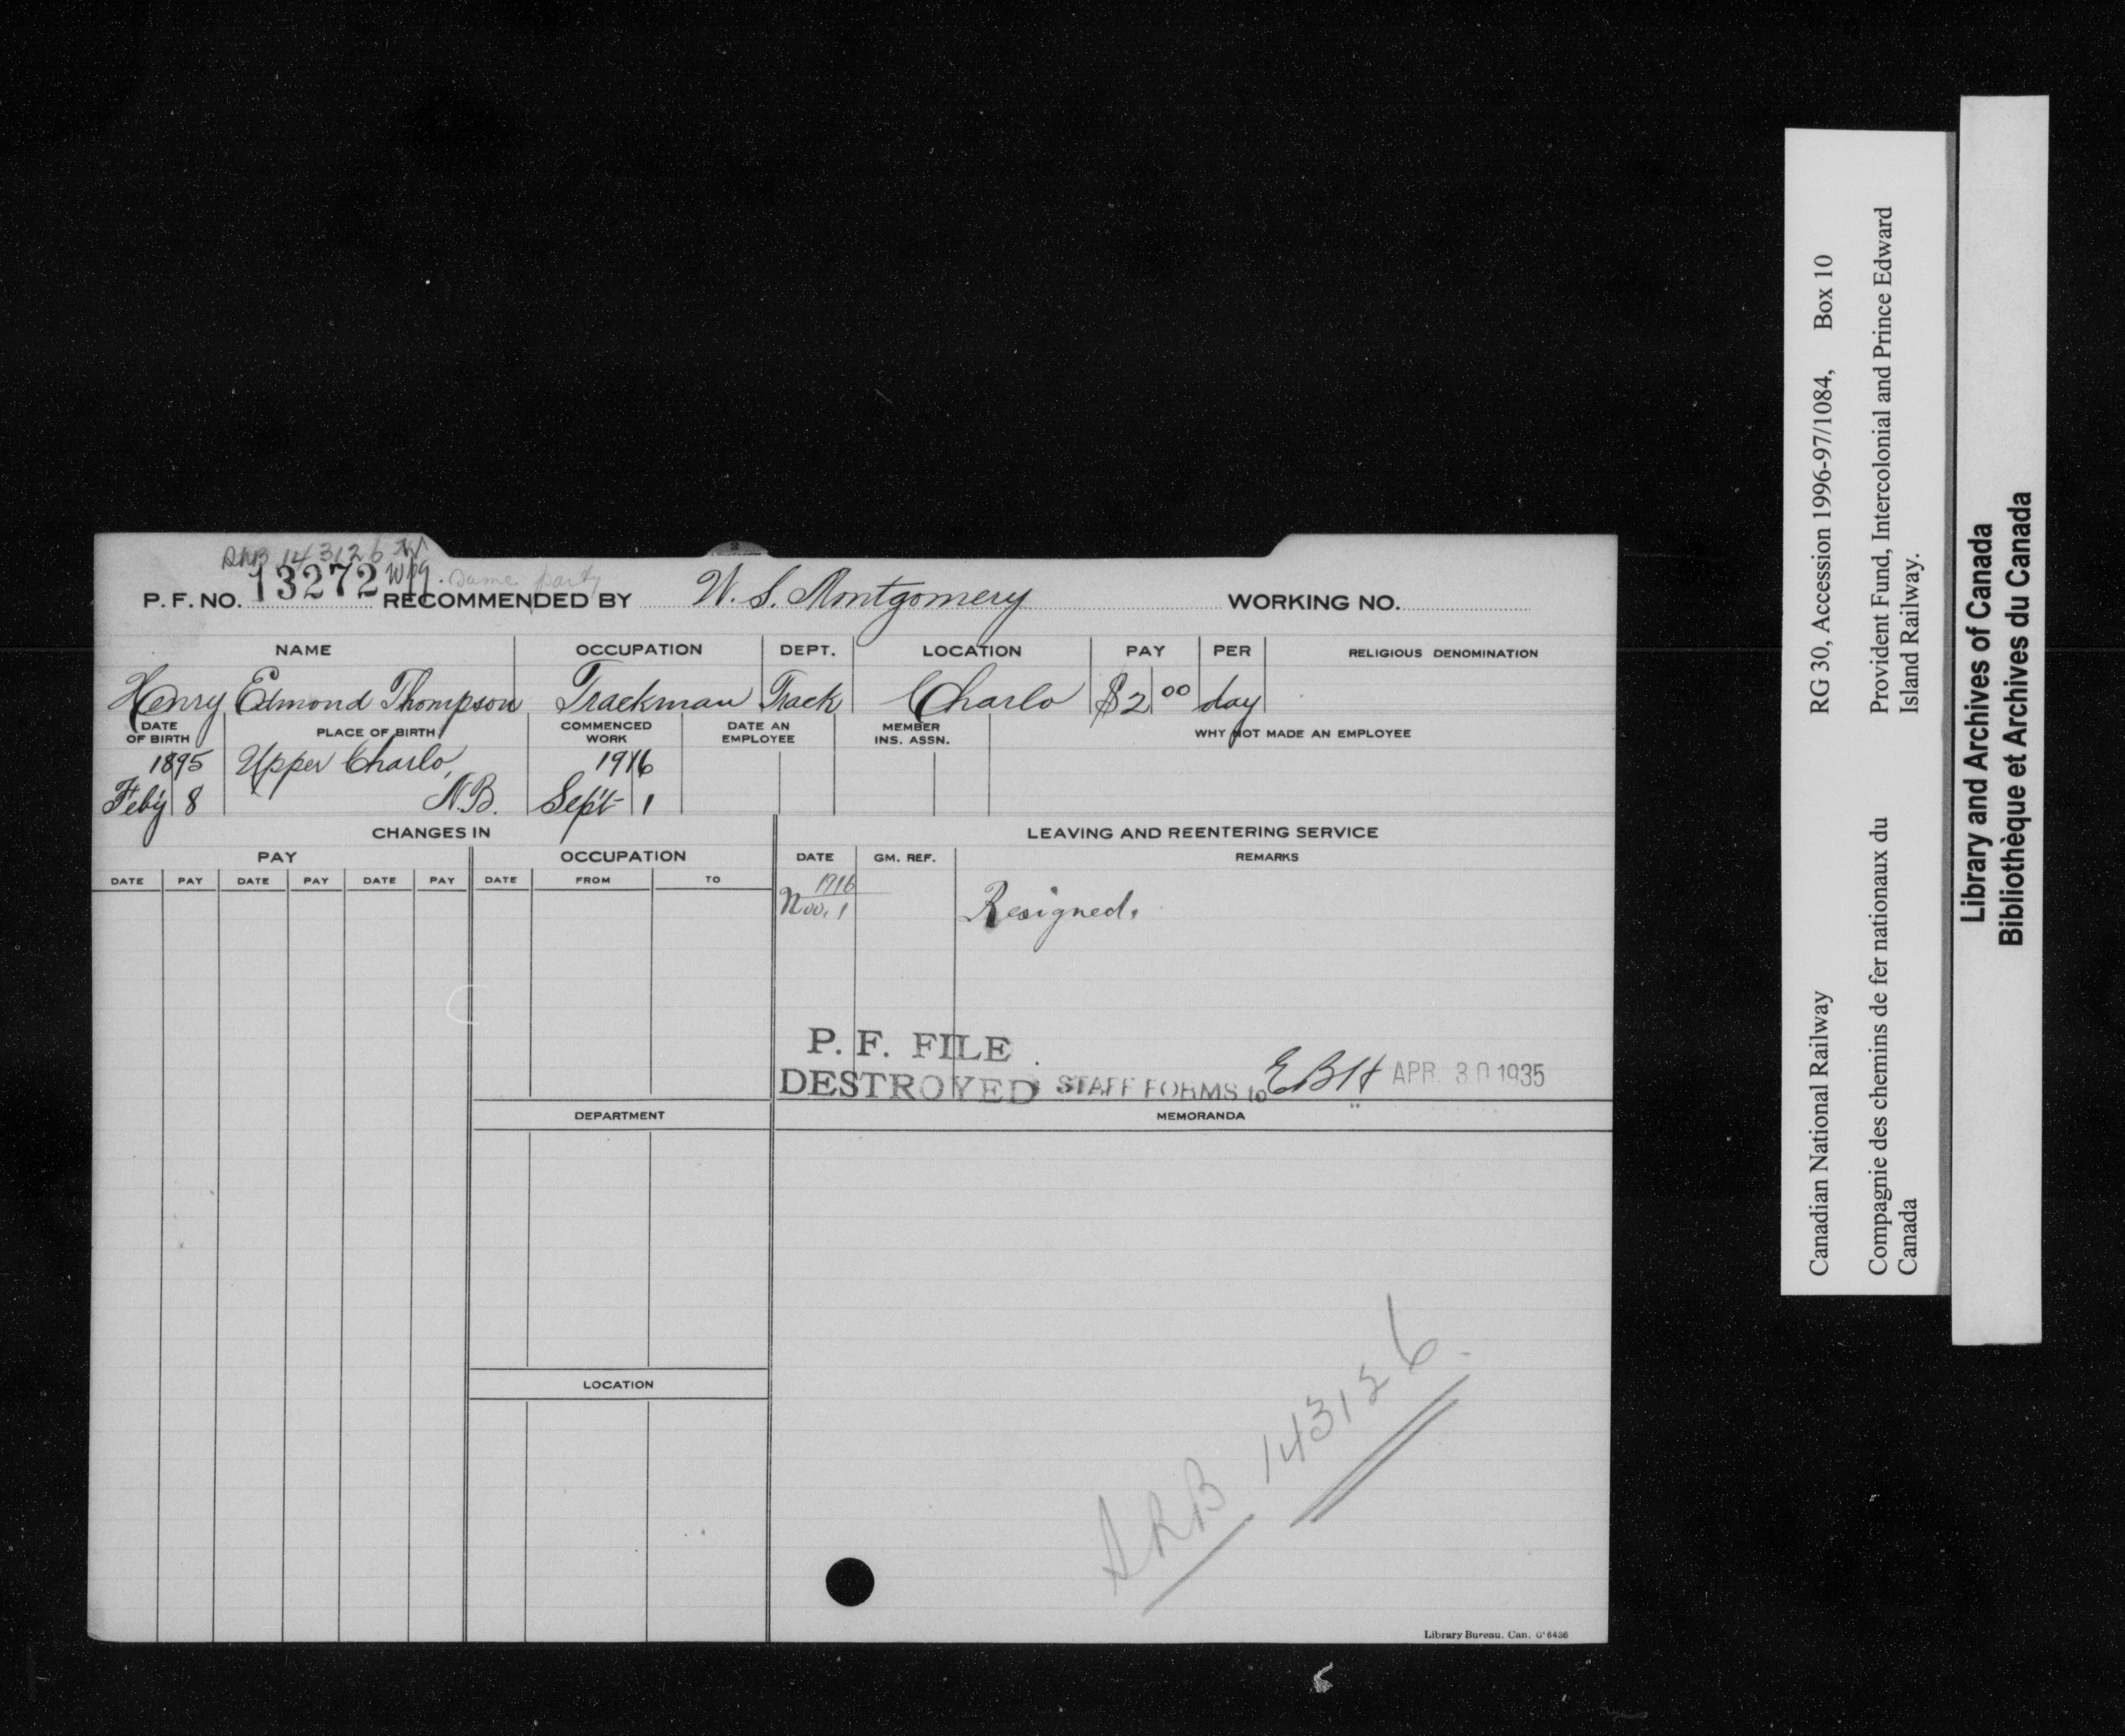 SRB 143126
P. F. NO. 13272 Wpg. same party RECOMMENDED BY W. S. Montgomery WORKING NO.
NAME OCCUPATION DEPT. LOCATION PAY PER RELIGIOUS DENOMINATION
Henry Edmond Thompson Trackman Track Charlo $2 00 day
DATE OF BIRTH PLACE OF BIRTH COMMENCED WORK DATE AN EMPLOYEE MEMBER INS. ASSN. WHY NOT MADE AN EMPLOYEE
1895 Upper Charlo, 1916
Feby 8 N.B. Sept 1
CHANGES IN LEAVING AND REENTERING SERVICE
PAY OCCUPATION DATE GM. REF. REMARKS
DATE PAY DATE PAY DATE PAY DATE FROM TO
1916
Nov. 1 Resigned.
P. F. FILE
DESTROYED STAFF FORMS to EBH APR 30 1935
DEPARTMENT MEMORANDA
LOCATION
SRB 143126
Library Bureau. Can. G'6436
Canadian National Railway RG 30, Accession 1996-97/1084, Box 10
Compagnie des chemins de fer nationaux du Provident Fund, Intercolonial and Prince Edward
Canada Island Railway.
Library and Archives of Canada
Bibliothèque et Archives du Canada